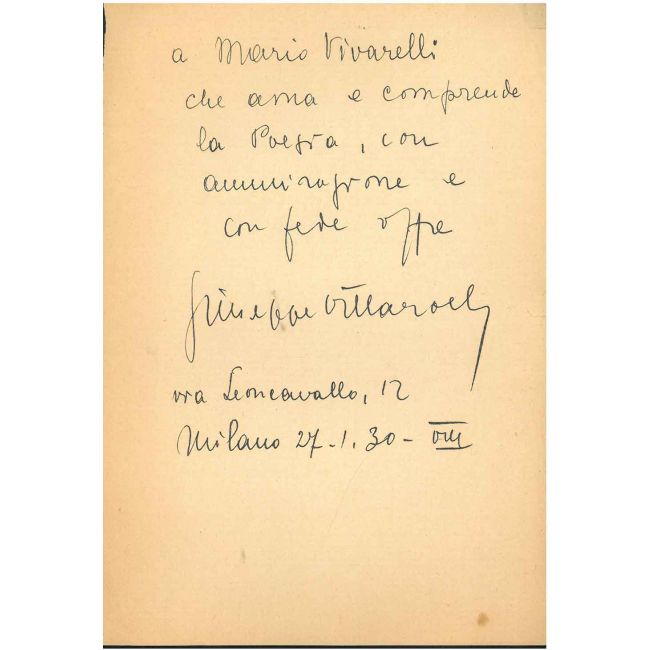 a Mario Vivarelli
che ama e comprende
la Poesia, con
ammirazione e
con fede offre
Giuseppe Villaroel
via Leoncavallo, 12
Milano 27.1.30 - VIII